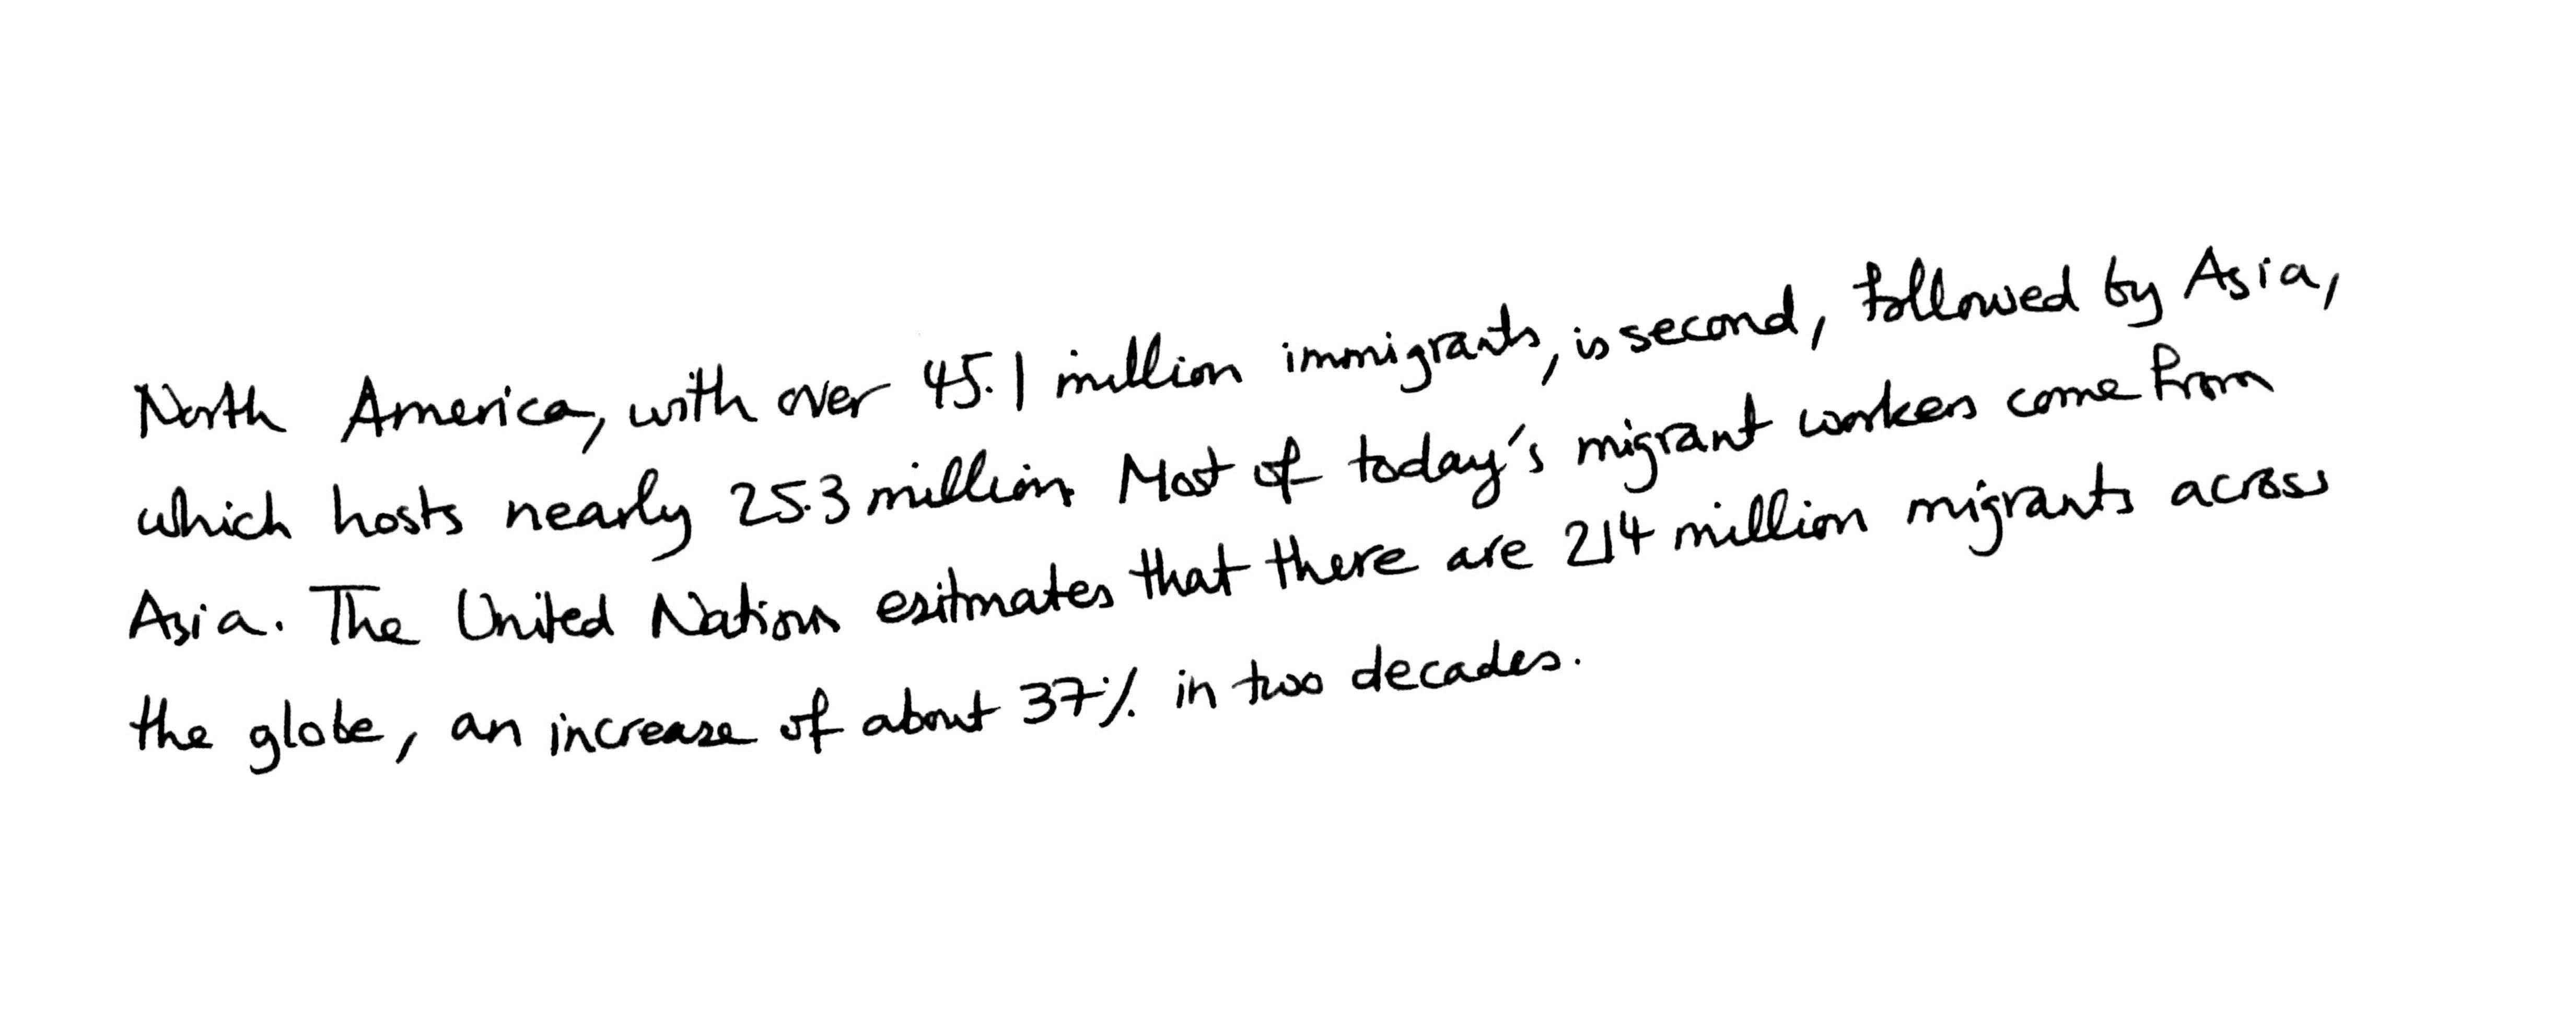 North America, with over 45.1 million immigrants, is second, followed by Asia,
which hosts nearly 25.3 million. Most of today's migrant workers come from
Asia. The United Nations esitmates that there are 214 million migrants across
the globe, an increase of about 37% in two decades.